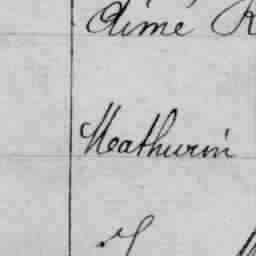 Aimé R
Mathurin